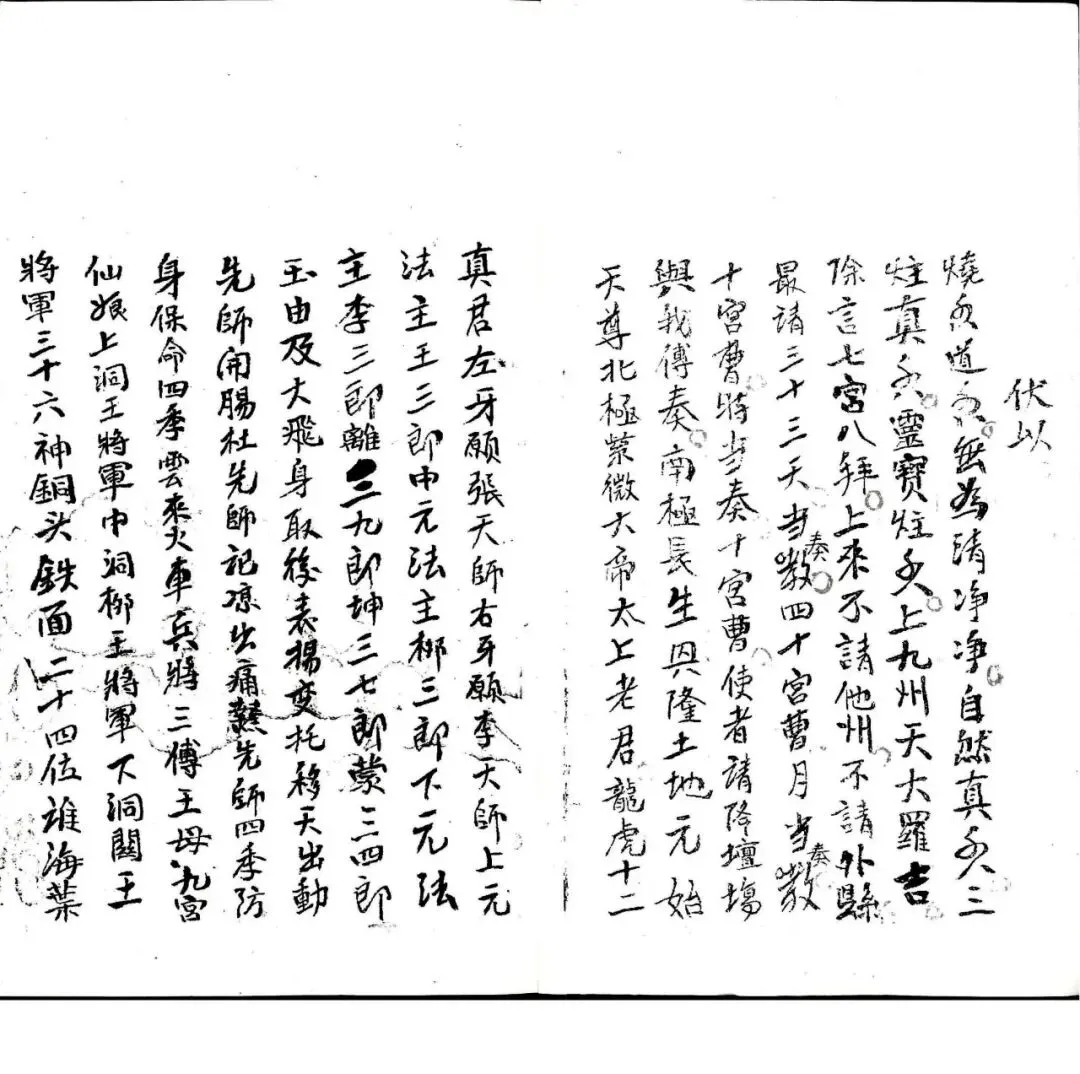 伏以
燒香道香無為清净净自然真香三
炷真香靈寶炷香上九州天大羅吉
除言七宮八拜上來不請他州不請外縣
最請三十三天当奏教四十宮曹月当奏教
十宮曹特当奏十宮曹使者請降壇場
與我傳奏南極長生興隆土地元始
天尊北極紫微大帝太上老君龍虎十二
真君左牙願張天師右牙願李天師上元
法主王三郎中元法主柳三郎下元法
主李三郎離三九郎坤三七郎蒙三四郎
玉由及大飛身取後表揚变托移天出動
先師開腸杜先師記涼出痛先師四季防
身保命四季雲來火車兵將三傅王母九宮
仙娘上洞王將軍中洞柳王將軍下洞關王
將軍三十六神銅头鉄面二十四位海葉